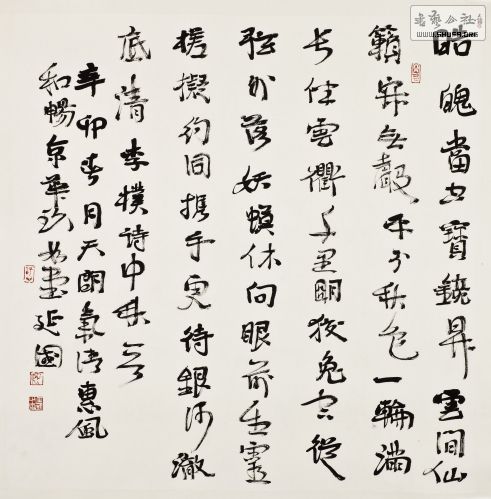 書藝公社
WWW.SHUFA.ORG
皓魄當空寶鏡昇雲間仙
籟寂無聲平分秋色一輪滿
長伴雲衢千里明狡兔空從
弦外落妖蟆休向眼前生靈
槎擬約同攜手更待銀河澈
底清李樸詩中秋
辛卯春月天朗氣清惠風
和暢京華延國